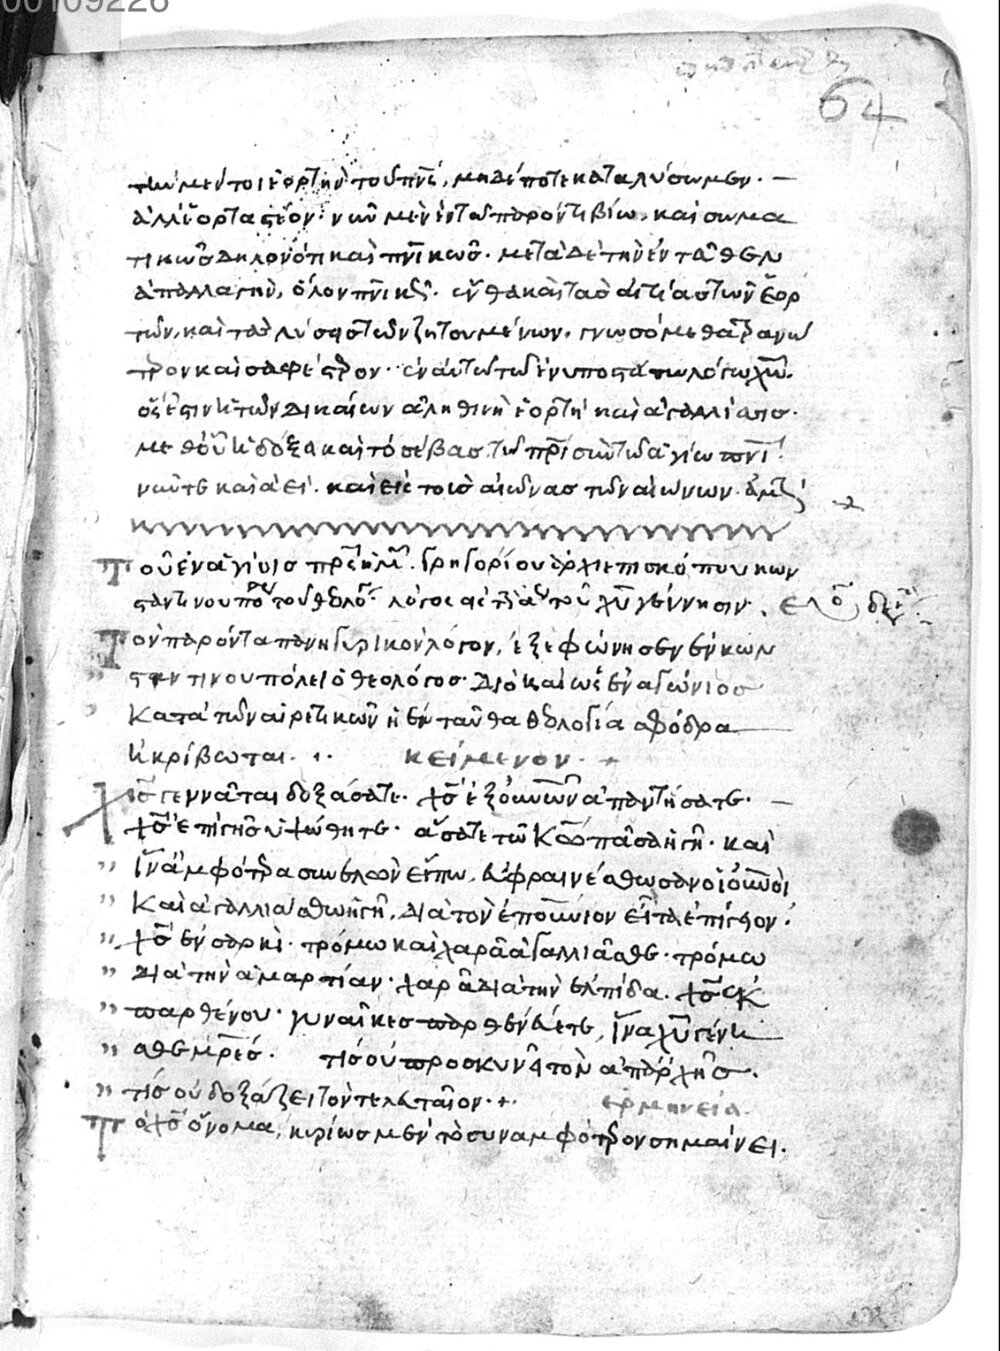 00109226
64
τὴν μέντοι ἑορτὴν τοῦ πνς, μηδέποτε καταλύσωμεν.
ἀλλ' ἑορταστέον· νῦν μὲν ἐν τῶ παρόντι βίω, καὶ σωμα
τικῶς δηλονότι καὶ πνικῶς. μετὰ δὲ τὴν ἐνταῦθεν
ἀπαλλαγὴν, ὅλον πνικῶς. ἔνθα καὶ τὰς αἰτίας τῶν ἑορ
τῶν, καὶ τὰς λύσεις τῶν ζητουμένων, γνωσόμεθα τρανώ
τερον καὶ σαφέστερον. ἐν αὐτῶ τῶ ἐνυποστάτω λόγω χῶ.
ὅς ἐστιν ἡ τῶν δικαίων ἀληθινὴ ἑορτὴ καὶ ἀγαλλίασις.
μεθ' οὗ ἡ δόξα καὶ τὸ σέβας τῶ πρὶ σὺν τῶ ἁγίω πνὶ
νῦν τε καὶ ἀεὶ. καὶ εἰς τοὺς αἰῶνας τῶν αἰώνων. ἀμήν
Τοῦ ἐν ἁγίοις πρς ἡμῶν. Γρηγορίου ἀρχιεπισκόπου κων
σταντινουπο τοῦ θεολό. λόγος εἰς τὴν τοῦ χυ γέννησιν.
Τὸν παρόντα πανηγυρικὸν λόγον, ἐξεφώνησεν ἐν κων
σταντινουπόλει ὁ θεολόγος. διὸ καὶ ὡς ἐναγώνιος
κατὰ τῶν αἱρετικῶν ἡ ἐνταῦθα θεολογία σφόδρα
ἠκρίβωται. κείμενον.
Χς γεννᾶται δοξάσατε. χς ἐξ οὐνῶν ἀπαντήσατε.
χς ἐπὶ γῆς ὑψώθητε. ἄσατε τῶ κω πᾶσα ἡ γῆ. καὶ
ἵν' ἀμφότερα συνελὼν εἴπω, εὐφραινέσθωσαν οἱ οὐνοὶ
καὶ ἀγαλλιάσθω ἡ γῆ, διὰ τὸν ἐπουνιον εἶτα ἐπίγειον.
χς ἐν σαρκὶ. τρόμω καὶ χαρᾶ ἀγαλλιᾶσθε. τρόμω
διὰ τὴν ἁμαρτίαν. χαρᾶ διὰ τὴν ἐλπίδα. χς ἐκ
παρθένου. γυναῖκες παρθενεύετε, ἵνα χυ γένη
σθε μρες. τίς οὐ προσκυνεῖ τὸν ἀπ' ἀρχῆς.
τίς οὐ δοξάζει τὸν τελευταῖον. ἑρμηνεία.
Τὸ χς ὄνομα, κυρίως μὲν τὸ συναμφότερον σημαίνει.